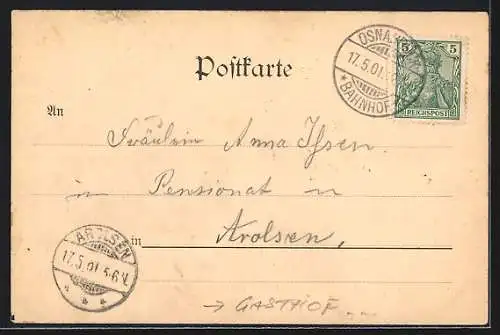 Postkarte
OSNA
17.5.01.
* BAHNHOF
5 5
REICHSPOST
An
Fräulein Anna Ihsen
im Pensionat in
in Arolsen,
AROLSEN
17.5.01. 5-6 N.
* * *
→ GASTHOF ...